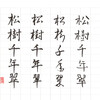 松樹千年翠
松樹千年翠
松樹千年翠
松樹千年翠